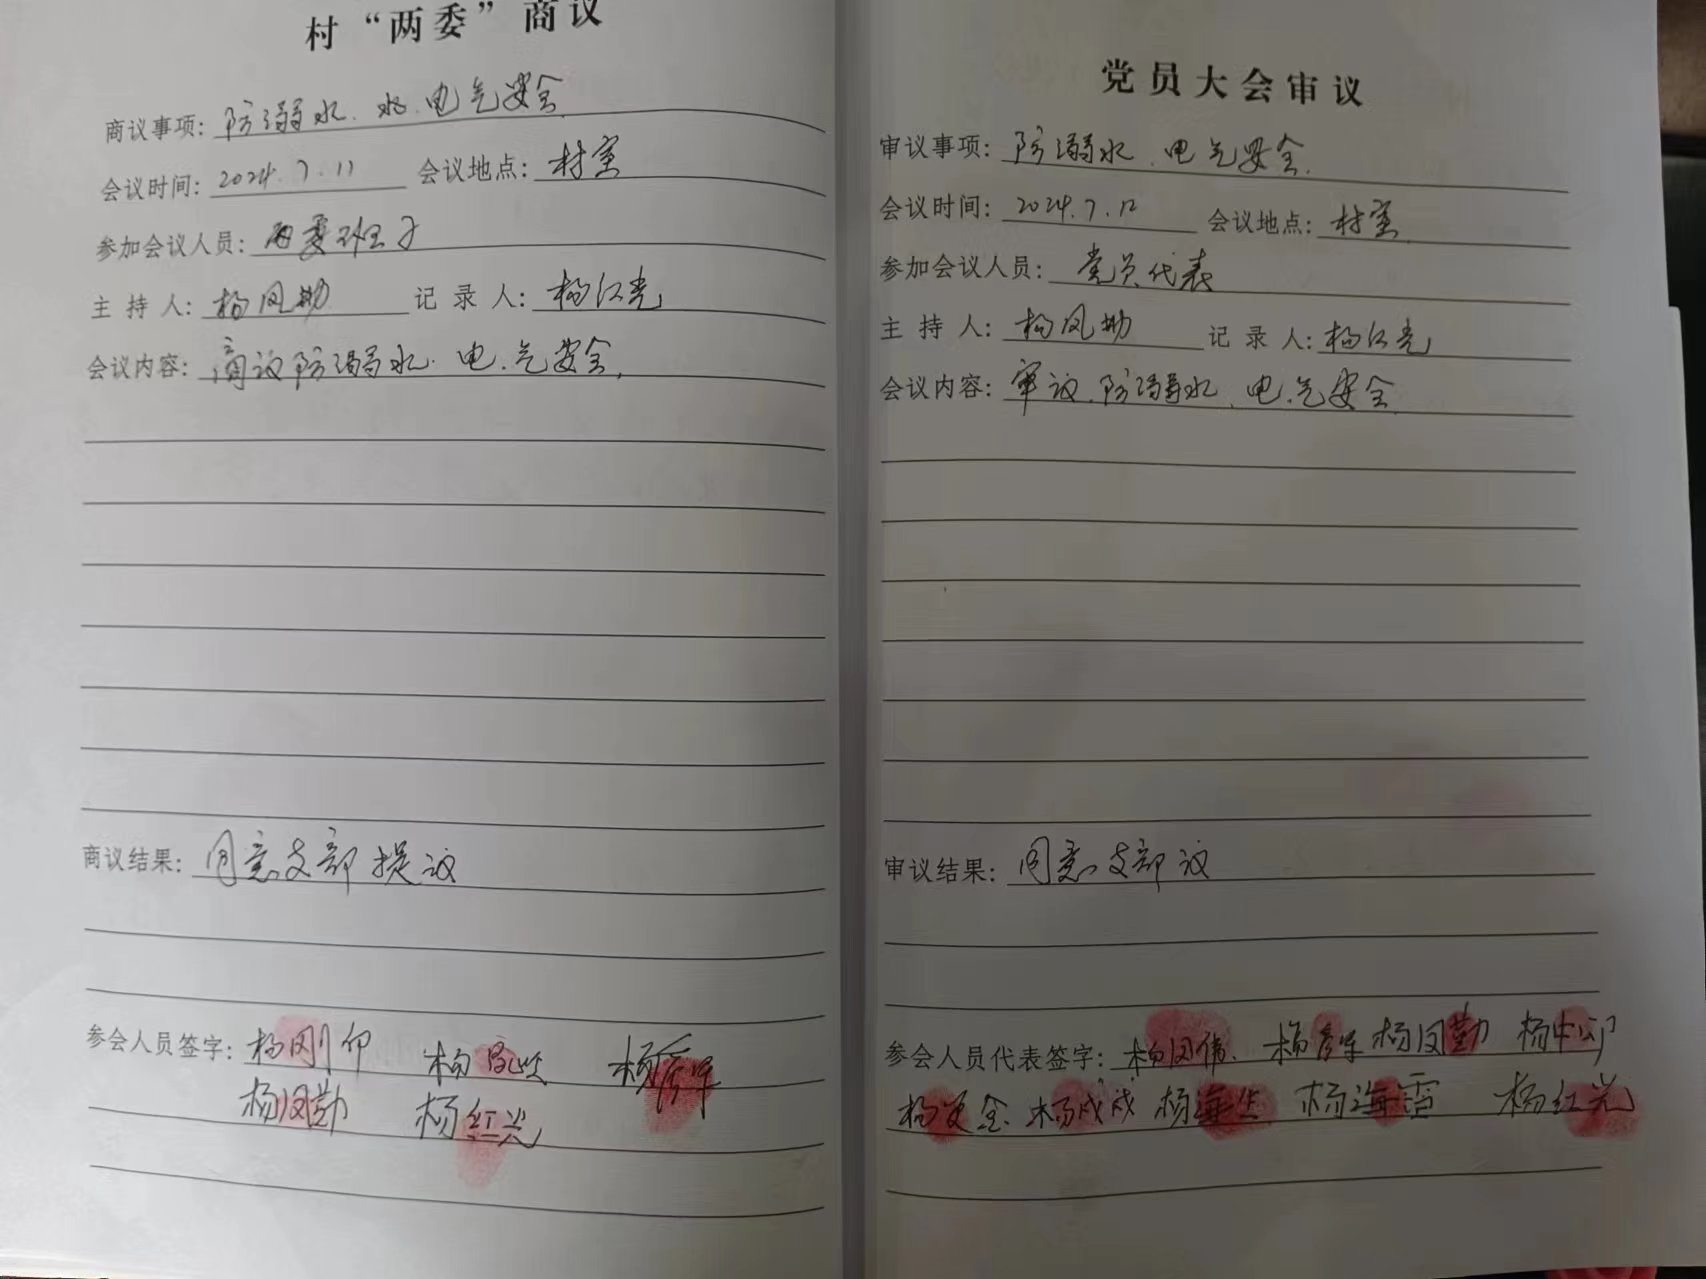 村“两委”商议
商议事项：防溺水．水．电气安全
会议时间：2024.7.11 会议地点：村室
参加会议人员：两委班子
主持人：杨凤勤 记录人：杨红光
会议内容：商议防溺水．电．气安全．
商议结果：同意支部提议
参会人员签字：杨刚 杨 杨彦军
杨凤勤 杨红光
党员大会审议
审议事项：防溺水．电气安全．
会议时间：2024.7.12 会议地点：村室
参加会议人员：党员代表
主持人：杨凤勤 记录人：杨红光
会议内容：审议．防溺水．电．气安全
审议结果：同意支部议
参会人员代表签字：杨凤伟． 杨彦军 杨凤勤 杨中
杨更全． 杨成成 杨海生 杨海雷 杨红光